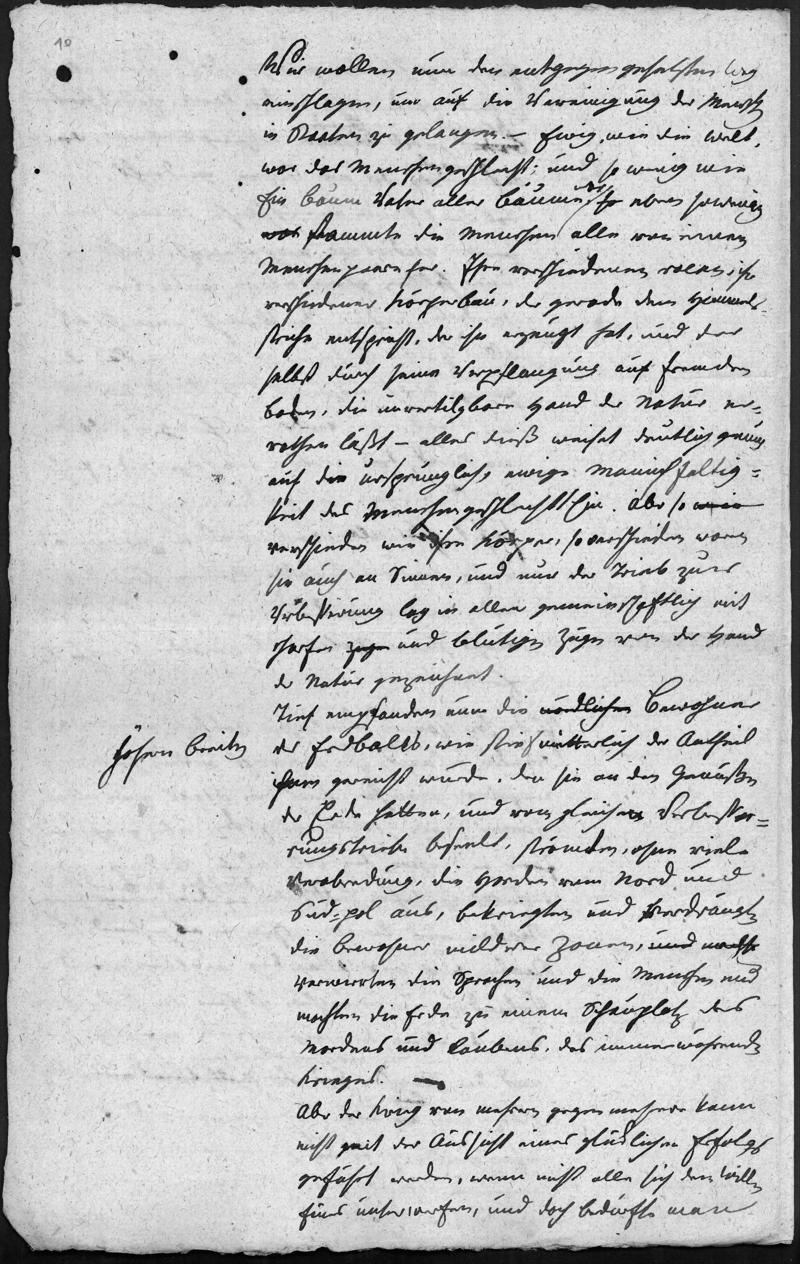 10
Wir wollen nun den entgegengesetzten Weg
einschlagen, um auf die Vereinigung der Mensch
in Staaten zu gelangen. – Ewig, wie die Welt,
war das Menschengeschlecht; und so wenig wie
Ein Baum Vater aller Bäume ist, eben sowenig
stammte die Menschen alle von einem
Menschenpaare her. Ihre verschiedenen
verschiedener Körperbau, der gerade dem Himmels-
striche entspricht, der ihn erzeugt hat, und der
selbst durch seine Verpflanzung auf fremden
Boden, die unvertilgbare Hand der Natur er-
rathen läßt – alles dieß weiset deutlich genug
auf die ursprünglich, ewige Mannichfaltig-
keit des Menschengeschlechts hin. Aber so wie
verschieden wie ihre Körper, so verschieden waren
sie auch an Sinnen, und nur der Trieb zur
Verbesserung lag in allen gemeinschaftlich mit
scharfen Zügen und blutigen Zügen von der Hand
der Natur gezeichnet.
Tief empfanden nun die nördlichen Bewohner
höhern Breiten
des Erdballs, wie stiefmütterlich der Antheil
ihnen gereicht wurde, den sie an den Genüßen
der Erde hatten, und von gleichem Verbesser-
ungstriebe beseelt, strömten, ohne viele
Verabredung, die Horden vom Nord und
Süd-pol aus, bekriegten und verdrängten
die Bewohner milderer Zonen, und
verwirrten die Sprachen und die Menschen und
machten die Erde zu einem Schauplatz des
Mordens und Raubens, des immerwährenden
Krieges. —
Aber der Krieg von mehrern gegen mehrere kann
nicht mit der Aussicht eines glücklichen Erfolgs
geführt werden, wenn nicht alle sich dem Willen
Eines unterwerfen, und doch bedurfte man